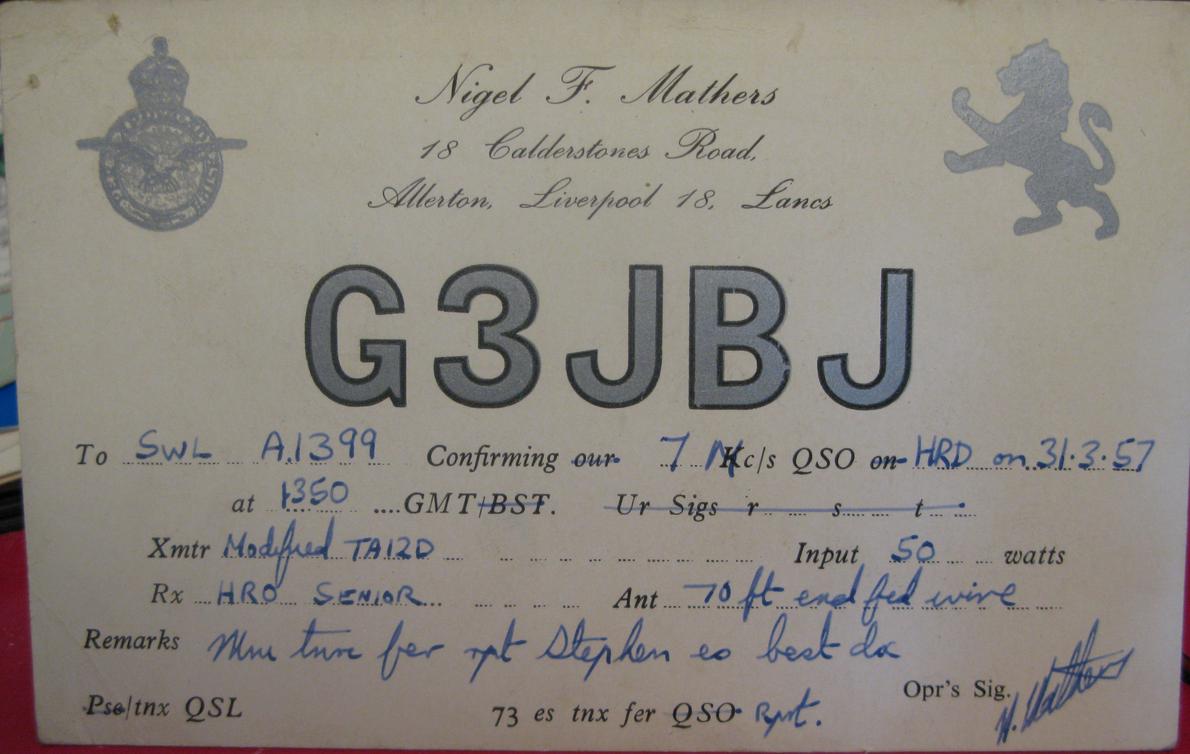 Nigel F. Mathers
18 Calderstones Road,
Allerton, Liverpool 18, Lancs
G3JBJ
To SWL A.1399 Confirming our 7 Mc/s QSO on HRD on 31.3.57
at 1350 GMT/BST. Ur Sigs r s t
Xmtr Modified TA12D Input 50 watts
Rx HRO SENIOR Ant 70 ft end fed wire
Remarks fer rpt Stephen es best dx
Opr's Sig. N. Mathers
Pse/tnx QSL 73 es tnx fer QSO Rprt.